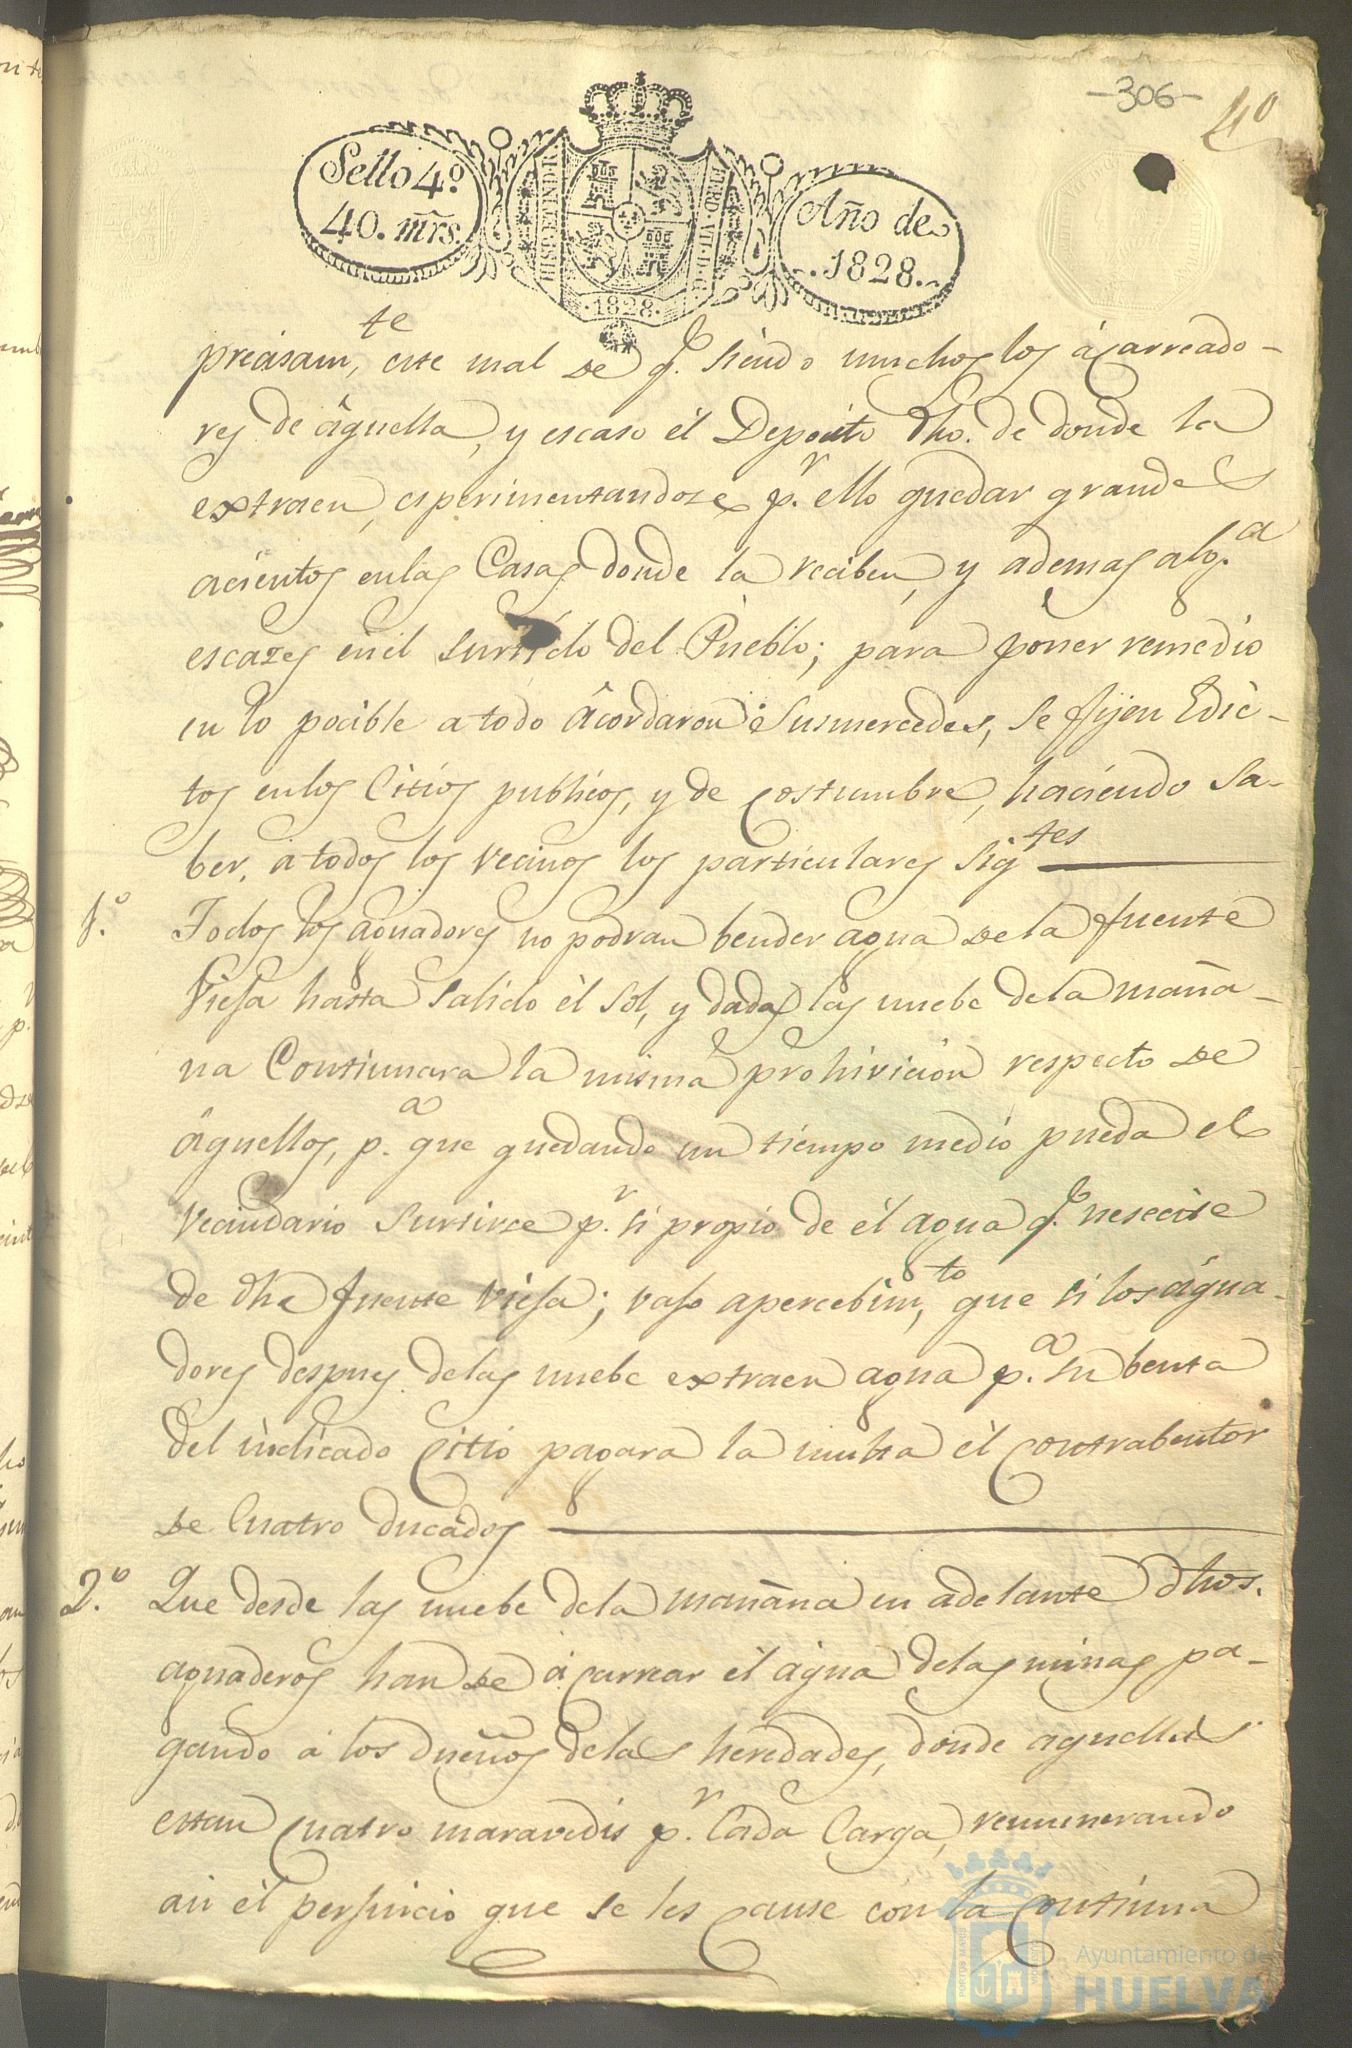 -306-
40
Sello 4º
40. mrs.
HISP. ET IND. R.
FERD. VII. D. G.
.1828.
Año de
.1828.
precisamte, este mal de q.e siendo muchos los ácarreado-
res de âquella, y escaso él Deposito dho. de donde la
extraen, esperimentandose p.r ello quedar grandes
acientos en las Casas donde la reciben, y ademas alg.a
escazes en el surtido del Pueblo; para poner remedio
en lo pocible a todo âcordaron Susmercedes, se fijen Edic-
tos en los Citios publicos, y de costumbre, haciendo sa-
ber, a todos los vecinos los particulares sigtes
1.º Todos los aguadores no podran bender agua de la fuente
Viefa hasta salido él sol, y dadas las nuebe de la maña-
na Continuara la misma prohivicion respecto de
âquellos, p.a que quedando un tiempo medio pueda el
Vecindario surtirce p.r si propio de él agua q.e nesecite
de dha fuente Viefa; vafo apercebimto, que si los água-
dores despues de las nuebe extraen agua p.a su benta
del indicado Citio pagara la multa él contrabentor
de Cuatro ducados
2.º Que desde las nuebe de la mañana en adelante dhos.
aguaderos han de ácarrear él água de las minas pa-
gando á los dueños de las heredades, donde aquellas
estan Cuatro maravedis p.r Cada Carga, remunerando
asi él perfuicio que se les cause con la Continua
Ayuntamiento de
HUELVA